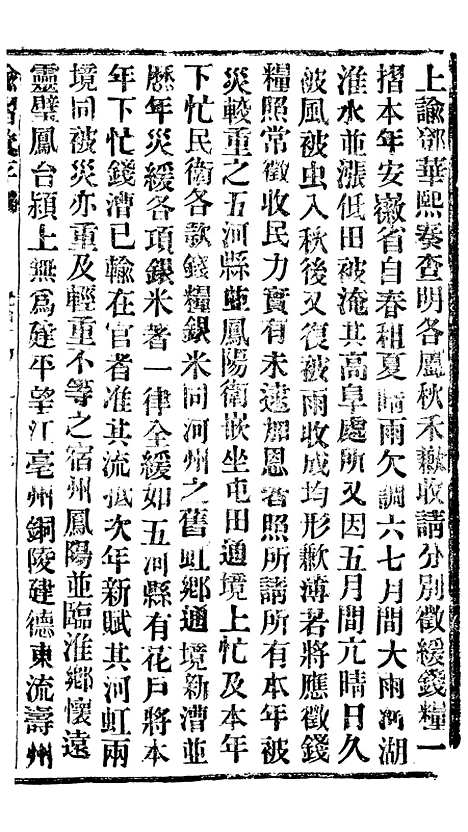 上諭鄧華熙奏查明各屬秋禾歉收請分別徵緩錢糧一
摺本年安徽省自春徂夏晴雨欠調六七月間大雨淅湖
淮水並漲低田被淹其高阜處所又因五月間亢晴日久
被風被虫入秋後又復被雨收成均形歉薄若將應徵錢
糧照常徵收民力實有未逮加恩著照所請所有本年被
災較重之五河縣並鳳陽衛嵌坐屯田通境上忙及本年
下忙民衛各款錢糧銀米同河州之舊虹鄉通境新漕並
歷年災緩各項銀米著一律全緩如五河縣有花戶將本
年下忙錢漕已輸在官者准其流抵次年新賦其河虹兩
境同被災亦重及輕重不等之宿州鳳陽並臨淮鄉懷遠
靈璧鳳台潁上無為建平望江亳州銅陵建德東流壽州